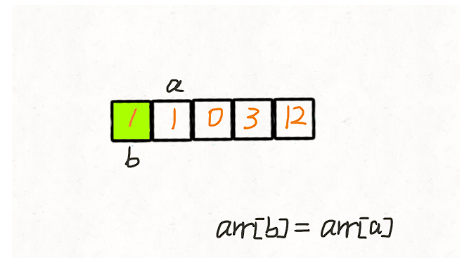 a
1 1 0 3 12
b
arr[b] = arr[a]